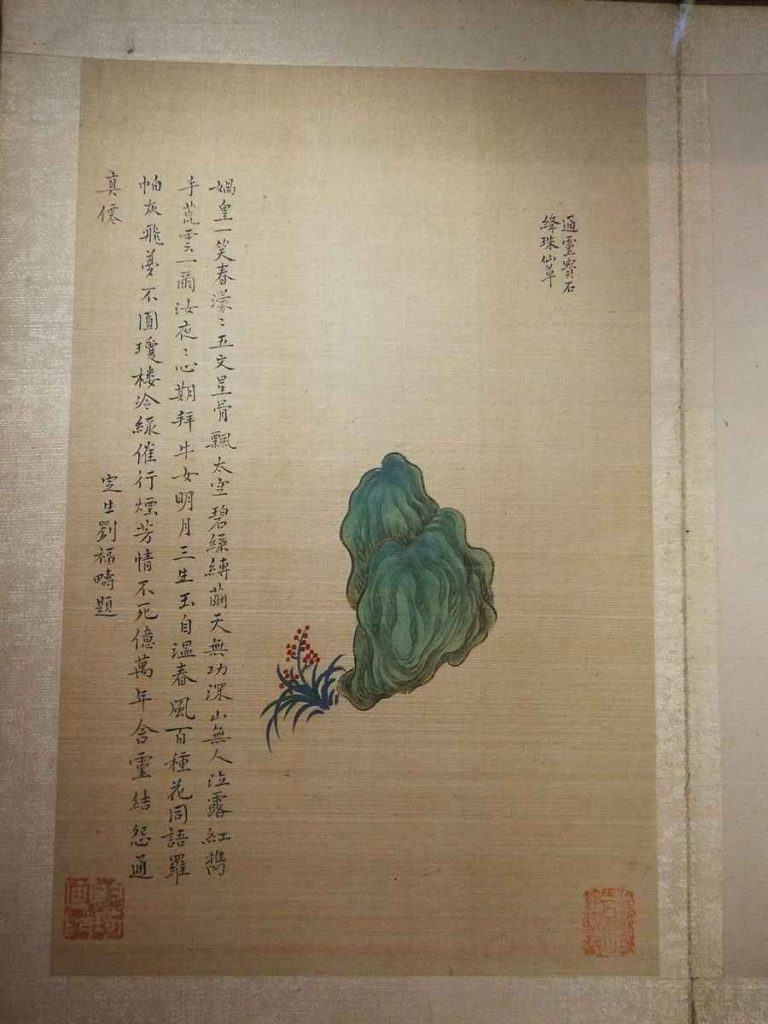 通靈寶石
絳珠仙草
媧皇一笑春濛〻五文星骨飄太空碧繰縳繭天無功深山無人泣露紅鵲
手荒雲一爾汝夜〻心期拜牛女明月三生玉自溫春風百種花同語羅
帕灰飛夢不圓瓊樓冷綠催行煙芳情不死億萬年含靈結怨通
真僊
定生劉福疇題